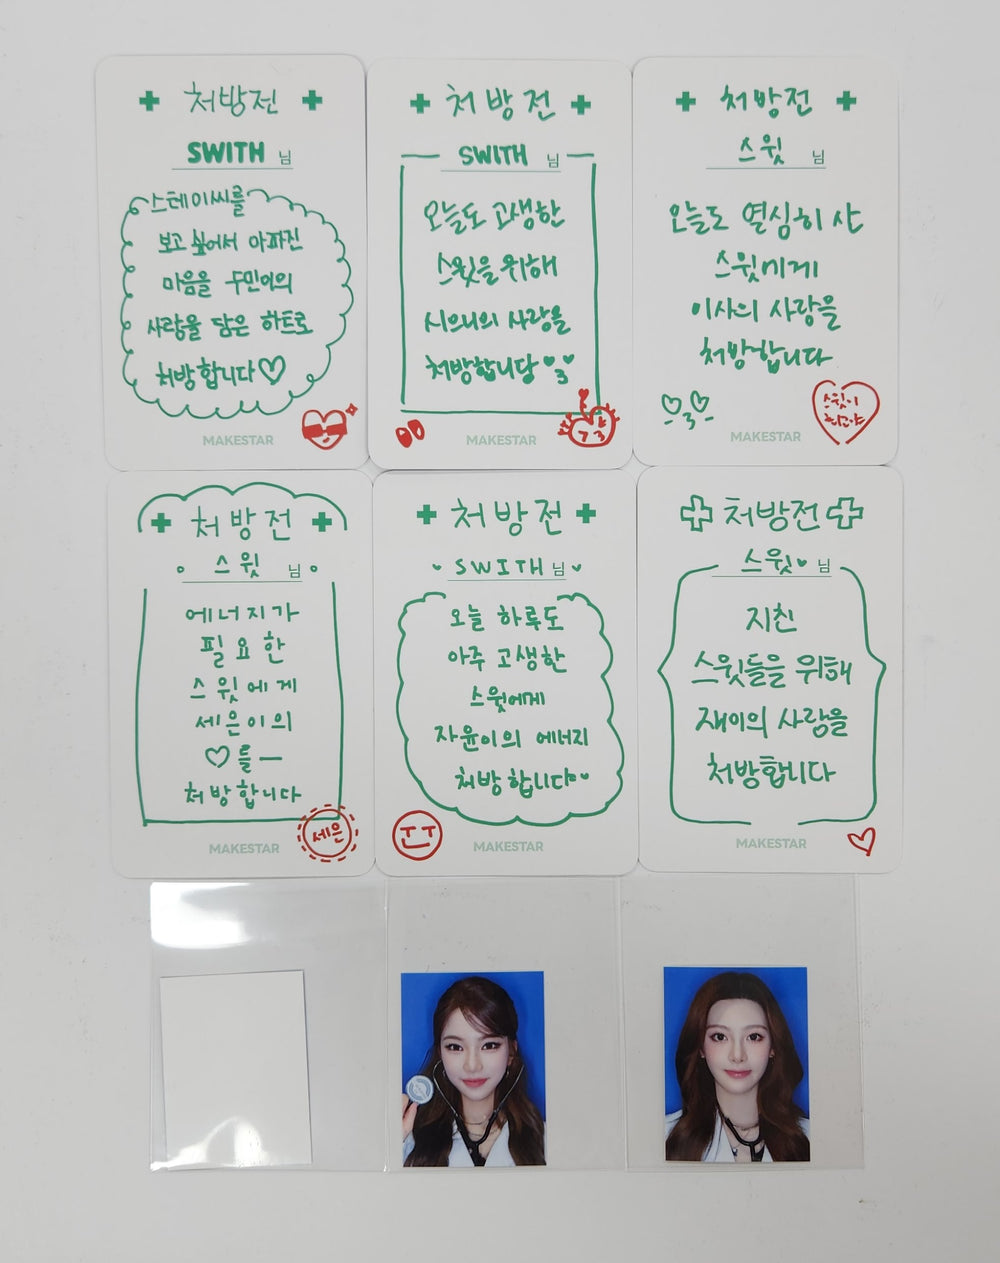 처방전
SWITH 님
스테이씨를
보고 싶어서 아파진
마음을 수민이의
사랑을 담은 하트로
처방합니다♡
MAKESTAR
처방전
SWITH 님
오늘도 고생한
스윗을 위해
시은이의 사랑을
처방합니당
MAKESTAR
처방전
스윗 님
오늘도 열심히 산
스윗에게
아이사의 사랑을
처방합니다
스윗이
최고야
MAKESTAR
처방전
스윗 님
에너지가
필요한
스윗에게
세은이의
♡를
처방합니다
세은
MAKESTAR
처방전
SWITH 님
오늘 하루도
아주 고생한
스윗에게
자윤이의 에너지
처방합니다
MAKESTAR
처방전
스윗♥ 님
지친
스윗들을 위해
재이의 사랑을
처방합니다
MAKESTAR